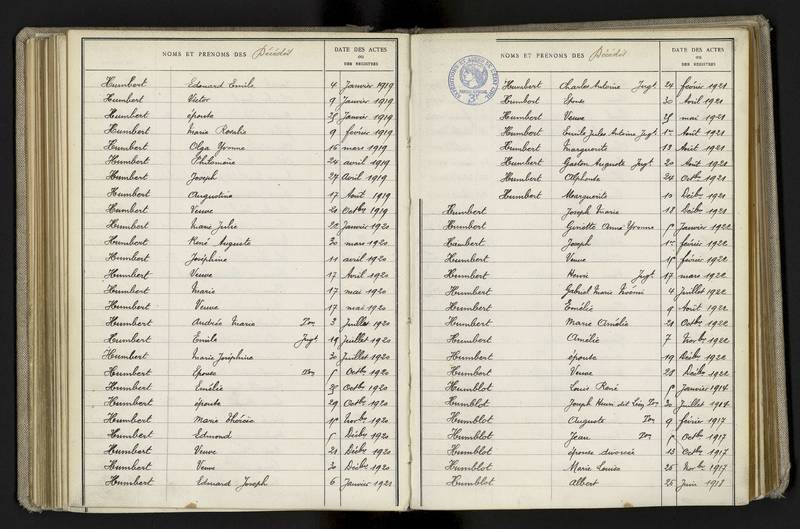 NOMS ET PRÉNOMS DES Décédés
DATE DES ACTES
OU
DES REGISTRES
Humbert Edouard Emile 4 Janvier 1919
Humbert Victor 9 Janvier 1919
Humbert épouse 25 Janvier 1919
Humbert Marie Rosalie 9 février 1919
Humbert Olga Yvonne 16 mars 1919
Humbert Philomène 24 avril 1919
Humbert Joseph 27 Avril 1919
Humbert Augustine 17 Août 1919
Humbert Veuve 20 Octbre 1919
Humbert Marie Julie 22 Janvier 1920
Humbert René Auguste 20 mars 1920
Humbert Joséphine 11 avril 1920
Humbert Veuve 17 Avril 1920
Humbert Marie 17 mai 1920
Humbert Veuve 17 mai 1920
Humbert Andrée Marie Ton 3 Juillet 1920
Humbert Emile Jugt 19 Juillet 1920
Humbert Marie Joséphine 30 Juillet 1920
Humbert Epouse 5 Octbre 1920
Humbert Emélie 25 Octbre 1920
Humbert épouse 29 Octbre 1920
Humbert Marie Thérèse 15 Novbre 1920
Humbert Edmond 5 Décbre 1920
Humbert Veuve 21 Décbre 1920
Humbert Veuve 30 Décbre 1920
Humbert Edouard Joseph 6 Janvier 1921
NOMS ET PRÉNOMS DES Décédés
DATE DES ACTES
OU
DES REGISTRES
Humbert Charles Antoine Jugt 24 février 1921
Humbert Epouse 30 Avril 1921
Humbert Veuve 25 mai 1921
Humbert Emile Jules Antoine Jugt 1er Août 1921
Humbert Marguerite 13 Août 1921
Humbert Gaston Auguste Jugt 20 Août 1921
Humbert Alphonse 21 Octbre 1921
Humbert Marguerite 10 Décbre 1921
Humbert Joseph Marie 18 Décbre 1921
Humbert Ginette Anna Yvonne 5 Janvier 1922
Humbert Joseph 1er février 1922
Humbert Veuve 15 février 1922
Humbert Henri Jugt 17 mars 1922
Humbert Gabriel Marie Noémi 4 Juillet 1922
Humbert Emélie 9 Août 1922
Humbert Marie Amélie 21 Octbre 1922
Humbert Amélie 7 Novbre 1922
Humbert épouse 19 Décbre 1922
Humbert Veuve 28 Décbre 1922
Humblot Louis René 5 Janvier 1914
Humblot Joseph Henri dit Léon Ton 30 Juillet 1914
Humblot Auguste Ton 9 février 1917
Humblot Jean Ton 5 Octbre 1917
Humblot épouse divorcée 13 Octbre 1917
Humblot Marie Louise 25 Novbre 1917
Humblot Albert 25 Juin 1918